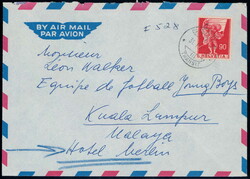 BY AIR MAIL
PAR AVION
1528
90
HELVETIA
Monsieur
Léon Walker
Equipe de Football Young Boys
Kuala Lumpur
Malaya
Hotel Merlin